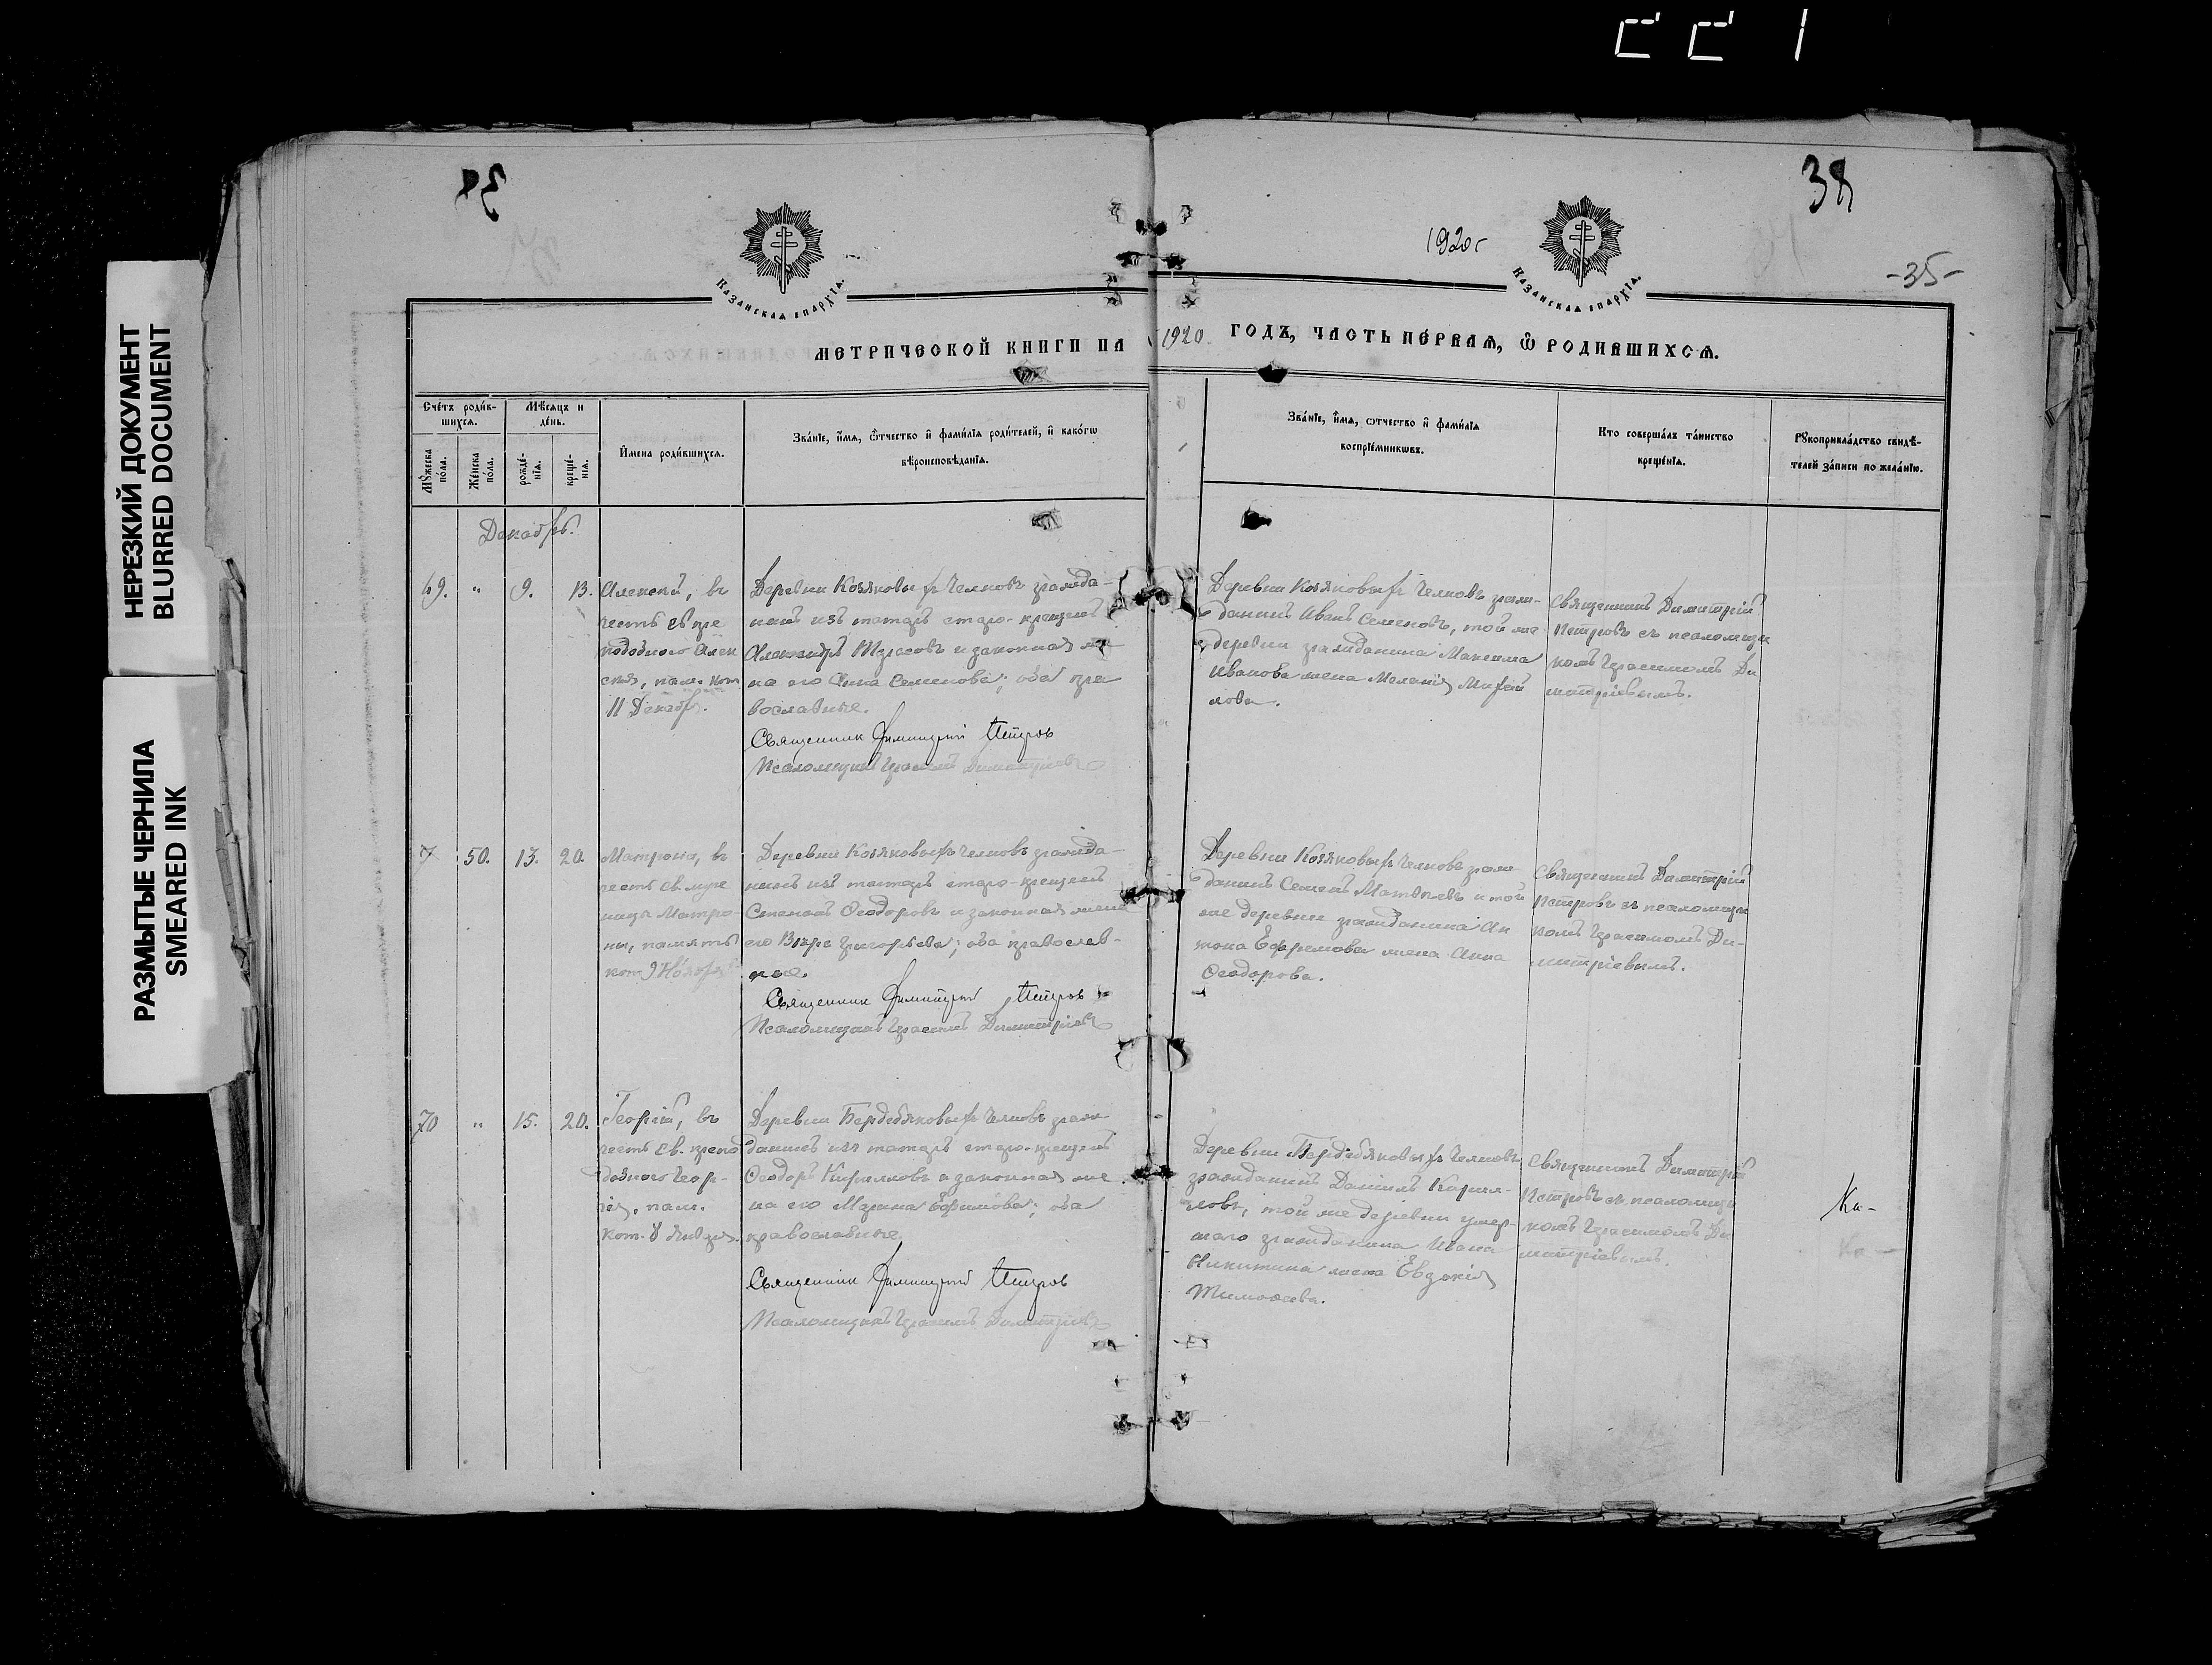 НЕРЕЗКИЙ ДОКУМЕНТ
BLURRED DOCUMENT
РАЗМЫТЫЕ ЧЕРНИЛА
SMEARED INK
38
1920 г
-35-
Казанская епархїя.
Казанская епархїя.
МЕТРИЧЕСКОЙ КНИГИ НА 1920 ГОДЪ, ЧАСТЬ ПЕРВАЯ, Ѡ РОДИВШИХСЯ.
Счетъ родив-
шихся.
Мужеска пола.
Женска пола.
Мѣсяцъ и
день.
рожде-
нїя.
креще-
нїя.
Имена родившихся.
Званїе, имя, ѿчество и фамилїя родителей, и какогѡ
вѣроисповѣданїя.
Званїе, имя, ѿчество и фамилїя
воспрїемникѡвъ.
Кто совершалъ таинство
крещенїя.
Рукоприкладство свидѣ-
телей записи по желанїю.
Декабрь.
69. " 9. 13.
Алексий, въ
честь св. пре
подобного Алек
сия, пам. кот.
11 Декабр.
Деревни Козяковыхъ Челновъ гражда-
нинъ изъ татаръ старо-крещенъ
Александръ Тарасовъ и законная же
на его Анна Семенова; оба пра
вославные.
Священник Димитрий Петров
Псаломщикъ Герасимъ Димитріевъ
Деревни Козяковыхъ Челновъ граж-
данинъ Иванъ Семеновъ, той же
деревни гражданина Максима
Иванова жена Меланія Михай
лова.
Священникъ Димитрій
Петровъ съ псаломщи
комъ Герасимомъ Ди
митріевымъ.
50. 13. 20.
Матрона, въ
честь св. муче
ницы Матро-
ны, память
кот. 9 Ноября
Деревни Козяковыхъ Челновъ гражда-
нинъ изъ татаръ старо-крещенъ
Степанъ Ѳеодоровъ и законная жена
его Вѣра Григорьева; оба православ-
ные.
Священник Димитрий Петров
Псаломщикъ Герасимъ Димитріевъ
Деревни Козяковыхъ Челновъ граж
данинъ Семенъ Матвѣевъ и той
же деревни гражданина Ан
тона Ефремова жена Анна
Ѳеодорова.
Священникъ Димитрій
Петровъ съ псаломщи
комъ Герасимомъ Ди-
митріевымъ.
70 " 15. 20.
Георгій, въ
честь св. препо
добного Геор-
гія, пам.
кот. 8 Января.
Деревни Бердебяковыхъ Челновъ граж-
данинъ изъ татаръ старо-крещенъ
Ѳеодоръ Кирилловъ и законная же
на его Марина Ефимова; оба
православные.
Священник Димитрий Петров
Псаломщикъ Герасимъ Димитріевъ
Деревни Бердебяковыхъ Челновъ
гражданинъ Даніилъ Кирил-
ловъ, той же деревни умер-
шаго гражданина Ивана
Никитина жена Евдокія
Тимофеева.
Священникъ Димитрій
Петровъ съ псаломщи
комъ Герасимомъ Ди
митріевымъ.
Ка-